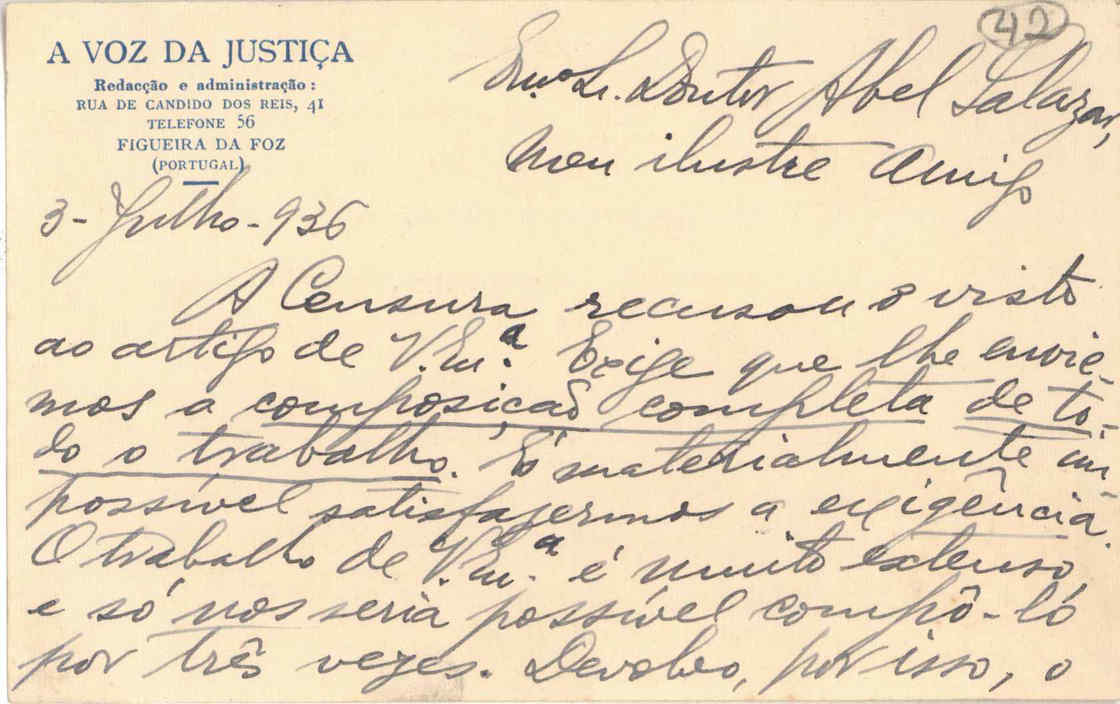 A VOZ DA JUSTIÇA
Redacção e administração:
RUA DE CANDIDO DOS REIS, 41
TELEFONE 56
FIGUEIRA DA FOZ
(PORTUGAL)
42
Exm.º Sr. Doutor Abel Salazar,
meu ilustre Amigo
3-Julho-936
A Censura recusou o visto
ao artigo de V. Ex.ª Exige que lhe envie-
mos a composição completa de to-
do o trabalho. É materialmente im
possível satisfazermos a exigência.
O trabalho de V. Ex.ª é muito extenso,
e só nos seria possível compô-ló
por três vezes. Devolvo, por isso, o